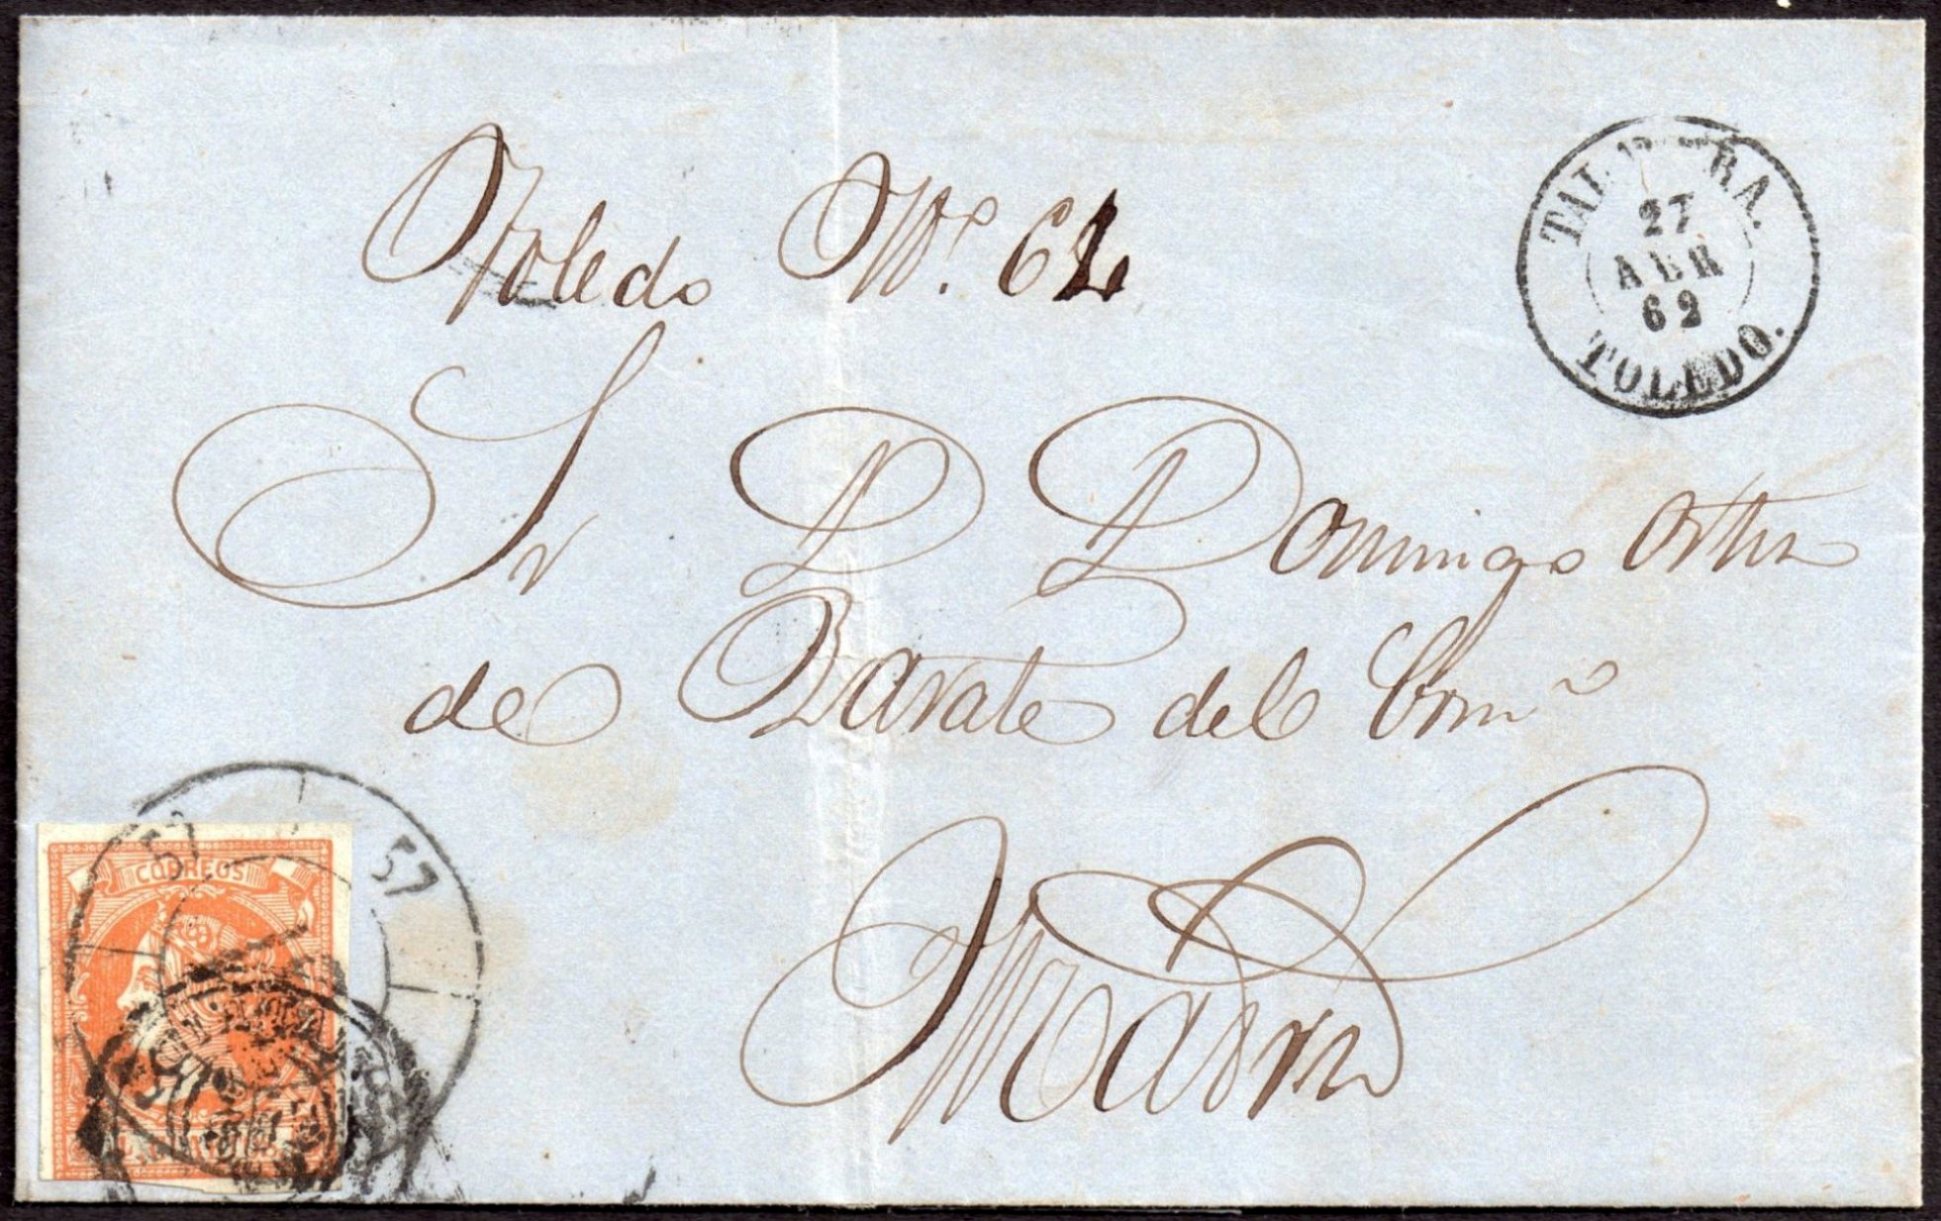 Toledo Nº. 62
TALAVERA.
27
ABR
62
TOLEDO.
Sr D Domingo Ortiz
de Zarate del Comº
Madrid
57 57
CORREOS